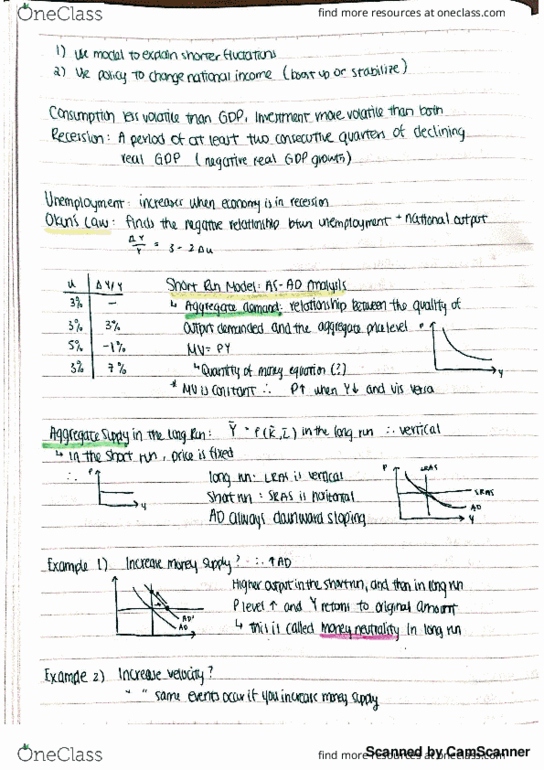 OneClass
find more resources at oneclass.com
1) use model to explain shorter fluctuations
2) use policy to change national income (boost up or stabilize)
Consumption less volatile than GDP, Investment more volatile than both
Recession: A period of at least two consecutive quarters of declining
real GDP (negative real GDP growth)
Unemployment: increases when economy is in recession
Okun's Law: finds the negative relationship btwn unemployment + national output
ΔY/Y = 3 - 2Δu
u ΔY/Y
3% -
3% 3%
5% -1%
3% 7%
Short Run Model: AS-AD Analysis
↳ Aggregate demand: relationship between the quality of
output demanded and the aggregate price level
MV = PY
↳ Quantity of money equation (?)
* MV is constant ∴ P↑ when Y↓ and vis versa
P
Y
Aggregate Supply in the Long Run: Ȳ = F(K̄, L̄) in the long run ∴ vertical
↳ In the short run, price is fixed
∴
P
Y
long run: LRAS is vertical
Short run: SRAS is horizontal
AD always downward sloping
P
LRAS
SRAS
AD
Y
Example 1) Increase money supply? ∴ ↑AD
AD'
AD
Higher output in the short run, and then in long run
P level ↑ and Y returns to original amount
↳ this is called money neutrality in long run
Example 2) Increase velocity?
" " same events occur if you increase money supply
OneClass
find more resources at oneclass.com
Scanned by CamScanner